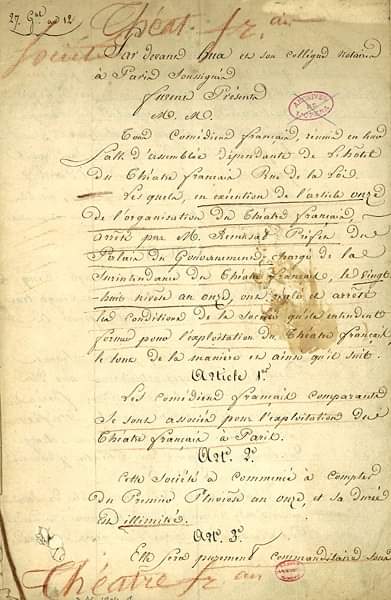 27. G.al an 12
Théat. fr. ais
Société
Par devant Hua et son collègue notaires
à Paris Soussignés
furent Présents
M. M.
Tous Comédiens français, réunis en leur
Salle d'assemblée dépendante de l'hôtel
du Théatre français Rue de la Loi.
Lesquels, en exécution de l'article onze
de l'organisation du Théatre français,
arrêté par M. Rémusat Préfet du
Palais du Gouvernement, chargé de la
Surintendance du Théatre français, le vingt
-huit nivôse an onze, ont réglé et arrêté
les conditions de la Société qu'ils entendent
former pour l'exploitation du Théatre français,
le tout de la manière et ainsi qu'il suit.
Article 1er.
Les comédiens français comparants
Se sont associés pour l'exploitation du
Théatre français à Paris.
Art. 2e.
Cette Société a commencé à compter
du Premier Pluviôse an onze, et sa durée
Est illimitée.
Art. 3e.
Elle sera purement Commanditaire sans
Théatre fr. ais